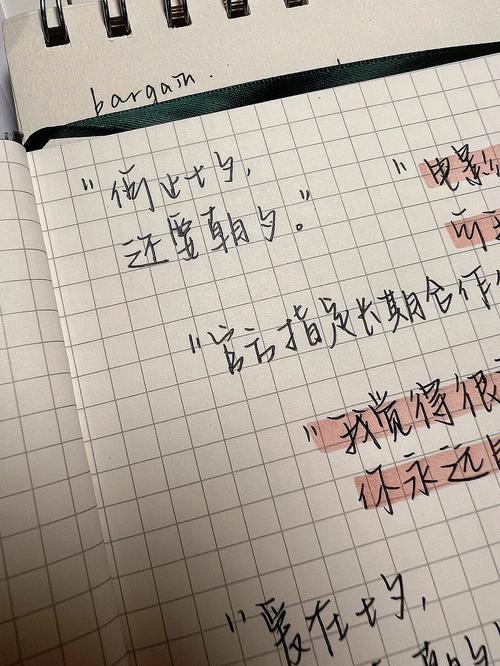 bargain.
"止七夕,
还要朝夕。"
"电影
"官方指定长期合作
"我觉得很
你永远
"爱在七夕,